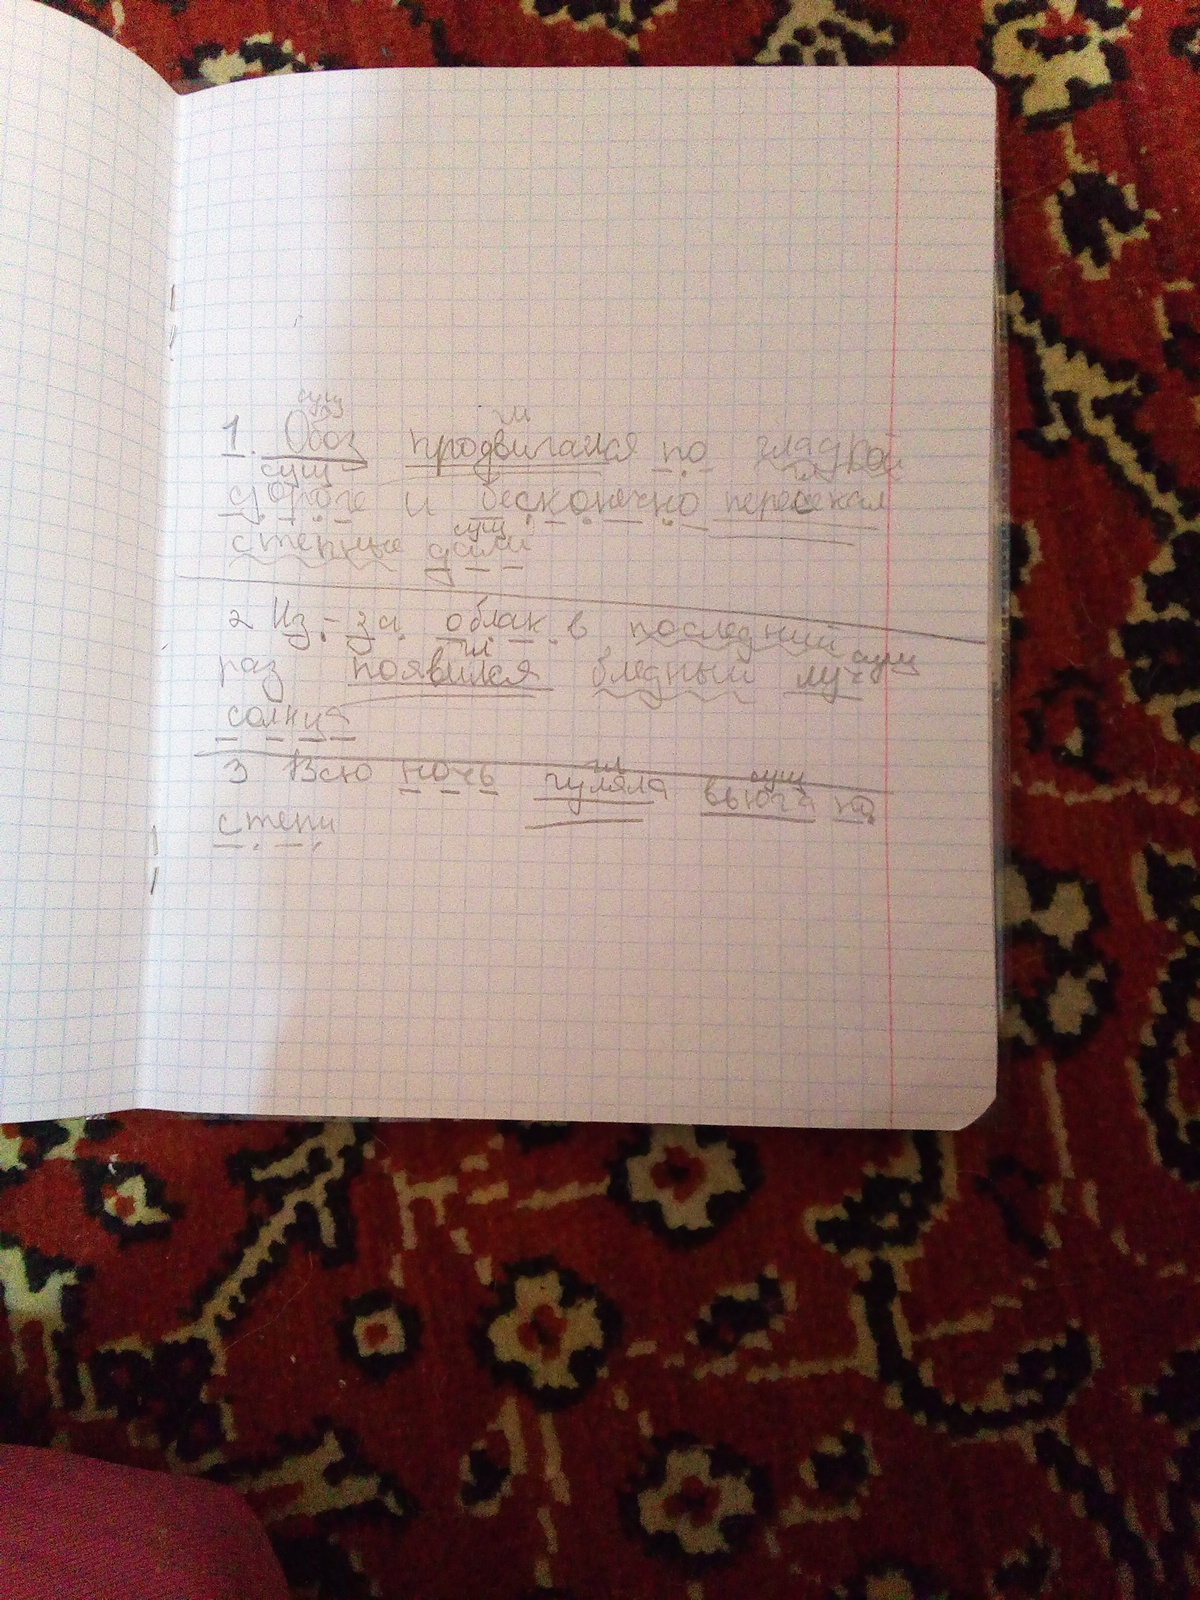 сущ гл
1. Обоз продвигался по гладкой
сущ
дороге и бесконечно пересекал
сущ
степные дали
2 Из-за облак в последний
гл сущ
раз появился бледный луч
солнца
гл сущ
3 Всю ночь гуляла вьюга по
степи